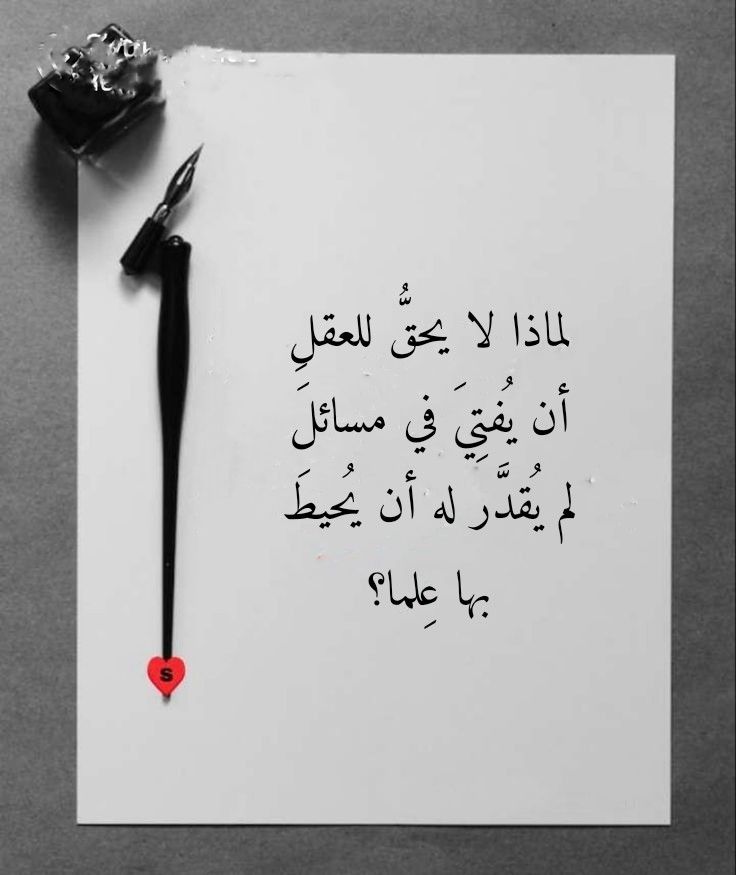 لماذا لا يحقُّ للعقلِ
أن يُفتِيَ في مسائلَ
لم يُقدَّر له أن يُحيطَ
بها عِلما؟
S